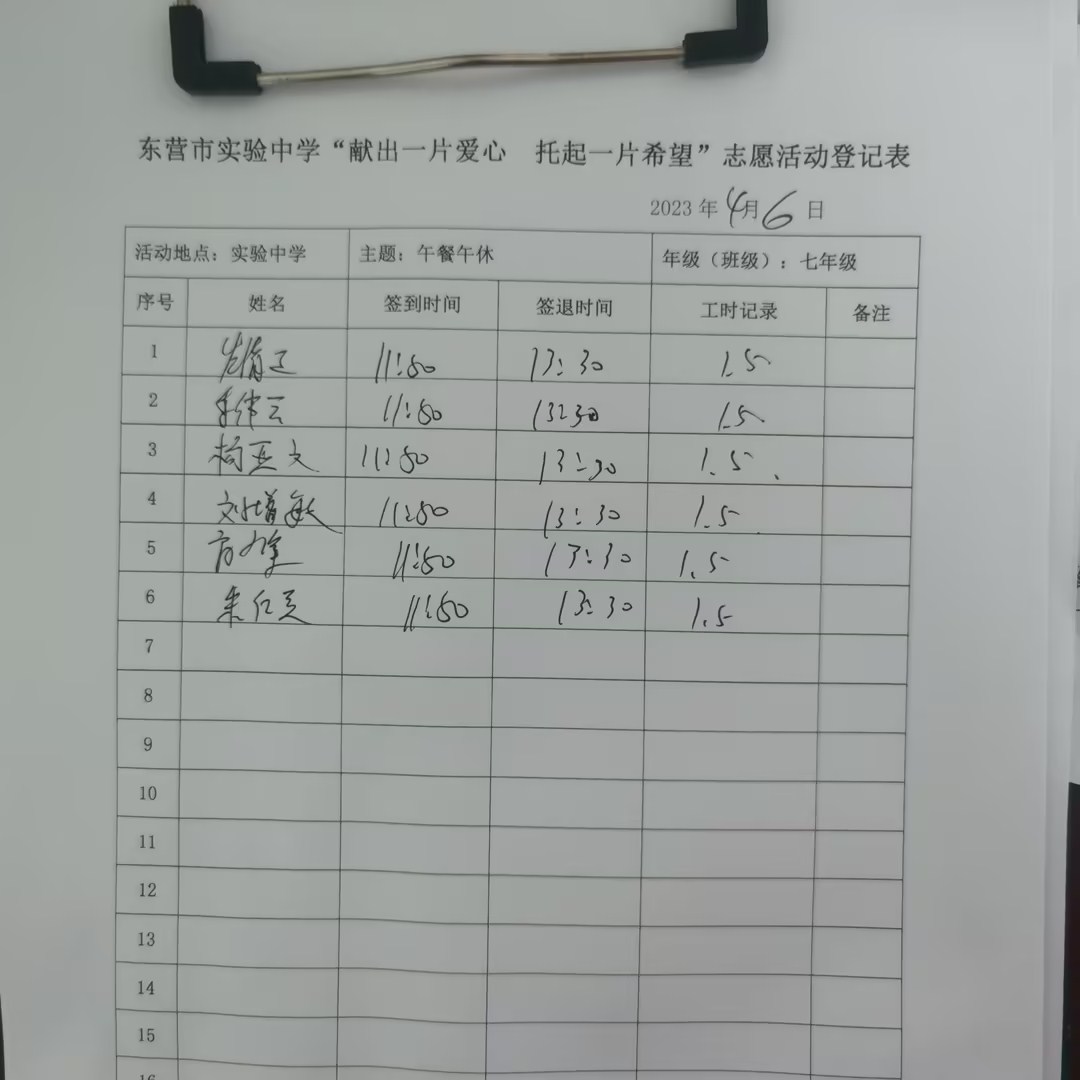 东营市实验中学“献出一片爱心 托起一片希望”志愿活动登记表
2023 年 4月 6 日
活动地点：实验中学 主题：午餐午休 年级（班级）：七年级
序号 姓名 签到时间 签退时间 工时记录 备注
1 11:50 13:30 1.5
2 11:50 13:30 1.5
3 杨亚文 11:50 13:30 1.5
4 刘增敏 11:50 13:30 1.5
5 11:50 13:30 1.5
6 11:50 13:30 1.5
7
8
9
10
11
12
13
14
15
16